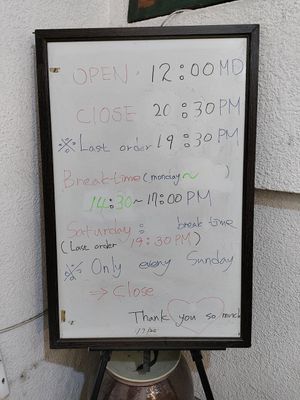 OPEN : 12:00 MD
ClOSE 20:30 PM
※ Last order 19:30 PM
Break time (monday ~ )
14:30 ~ 17:00 PM
Saturday : break time
(Last order 19:30 PM)
※ Only every Sunday
⇒ Close
Thank you so much